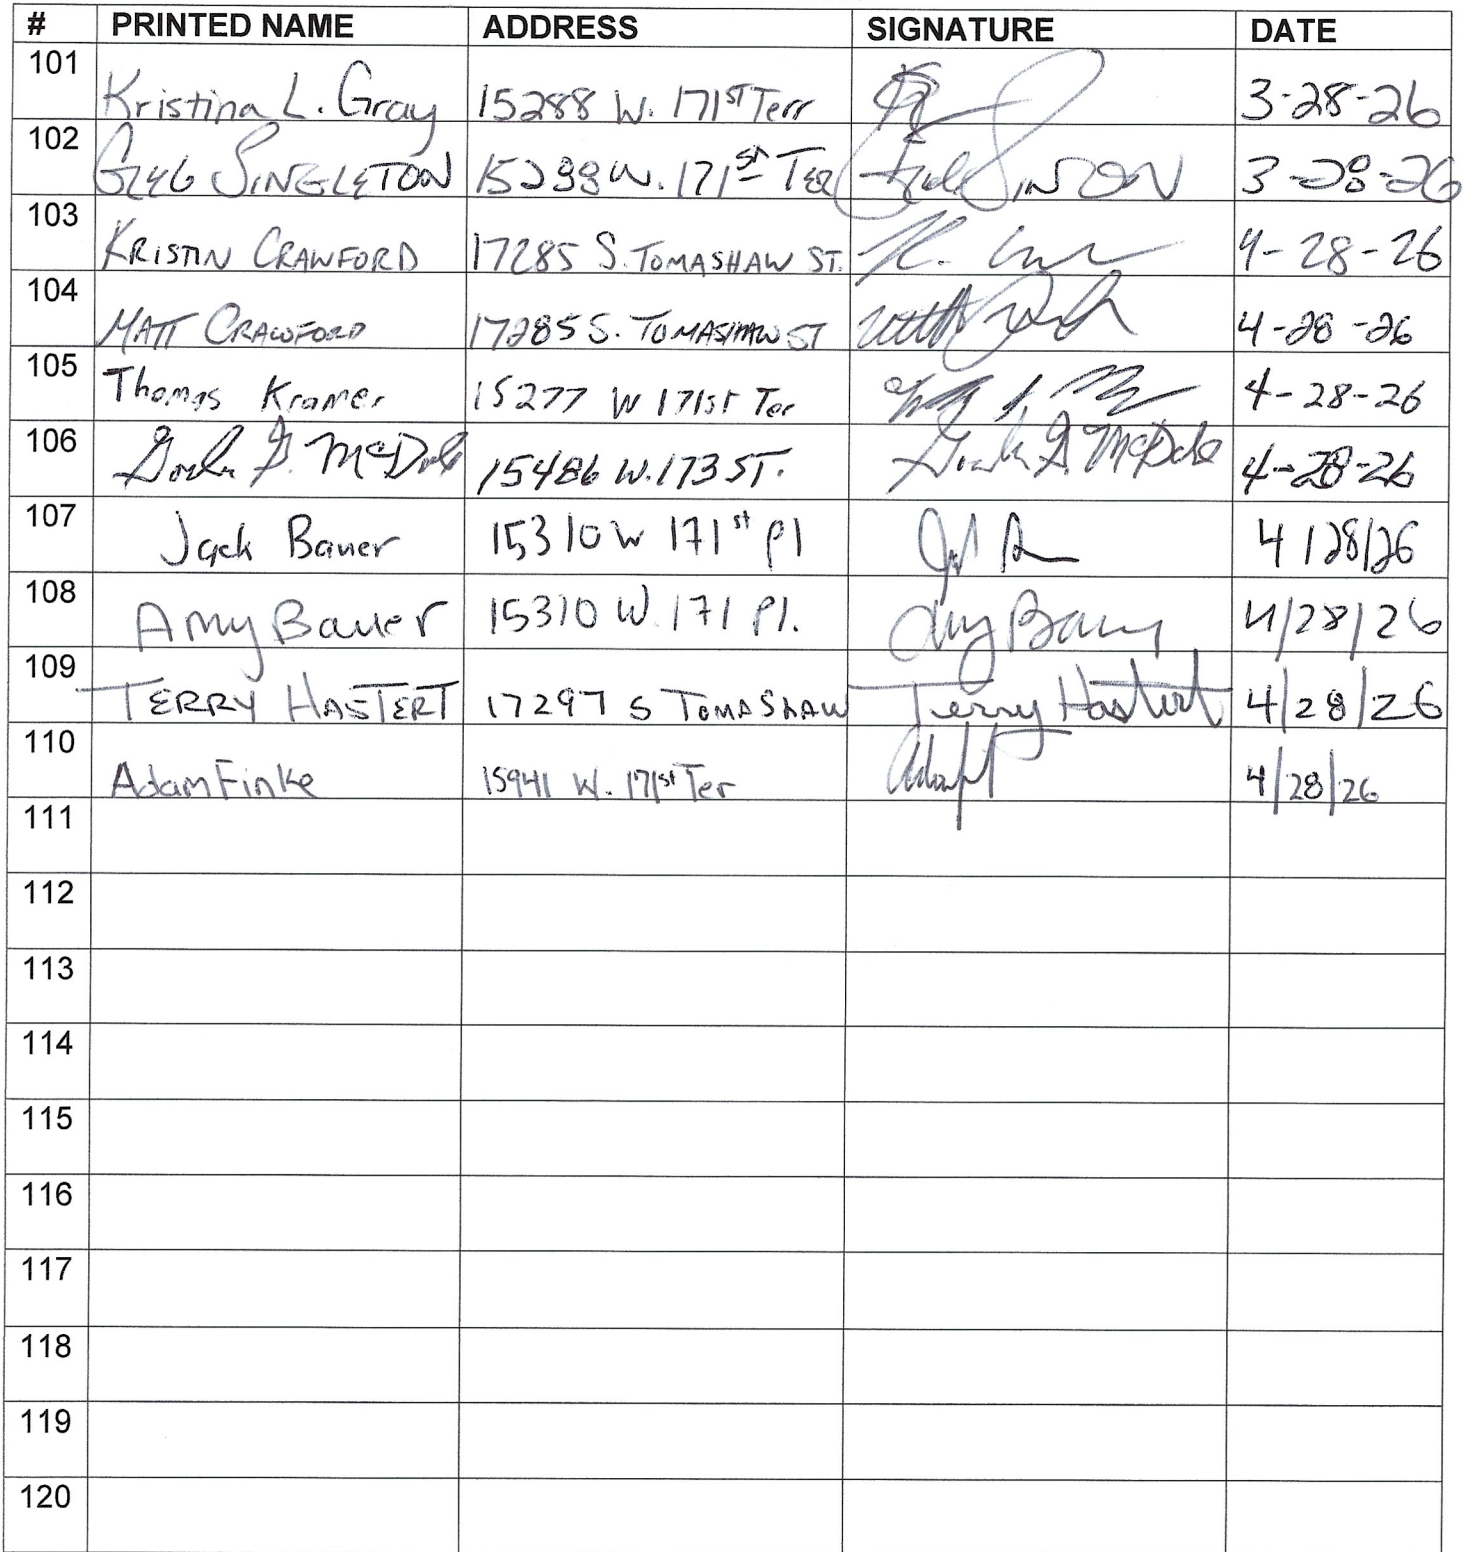 # PRINTED NAME ADDRESS SIGNATURE DATE
101 Kristina L. Gray 15288 W. 171st Terr 3-28-26
102 GREG SINGLETON 15288 W. 171st TER 3-28-26
103 KRISTIN CRAWFORD 17285 S. TOMASHAW ST. K. 4-28-26
104 MATT CRAWFORD 17285 S. TOMASHAW ST 4-28-26
105 Thomas Kramer 15277 W 171st Ter 4-28-26
106 G. McDole 15486 W. 173 ST. G. McDole 4-28-26
107 Jack Bauer 15310 W 171st Pl 4/28/26
108 Amy Bauer 15310 W. 171 Pl. Amy Bauer 4/28/26
109 TERRY HASTERT 17297 S TOMASHAW Terry Hastert 4/28/26
110 Adam Finke 15941 W. 171st Ter 4/28/26
111
112
113
114
115
116
117
118
119
120